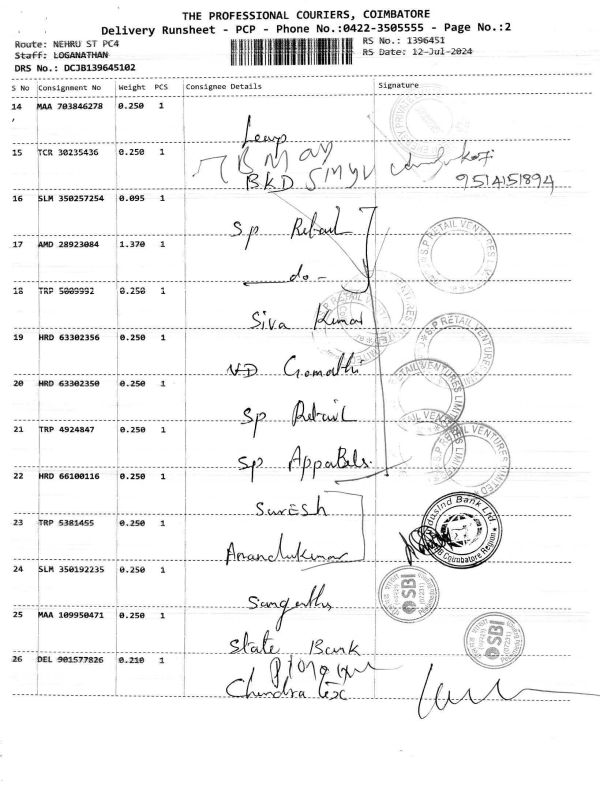 THE PROFESSIONAL COURIERS, COIMBATORE
Delivery Runsheet - PCP - Phone No.:0422-3505555 - Page No.:2
Route: NEHRU ST PC4 RS No.: 1396451
Staff: LOGANATHAN RS Date: 12-Jul-2024
DRS No.: DCJB139645102
S No Consignment No Weight PCS Consignee Details Signature
14 MAA 703846278 0.250 1
15 TCR 30235436 0.250 1
BKD
9514151894
16 SLM 350257254 0.095 1
Sp Retail
S.P RETAIL VENTURES
17 AMD 28923084 1.370 1
- do -
18 TRP 5009992 0.250 1
Siva Kumar
19 HRD 63302356 0.250 1
S.P RETAIL VENTURES
Gomathi
20 HRD 63302350 0.250 1
Sp Retail
21 TRP 4924847 0.250 1
Sp
22 HRD 66100116 0.250 1
Suresh
IndusInd Bank Ltd
Coimbatore Region
23 TRP 5381455 0.250 1
Anandukumar
24 SLM 350192235 0.250 1
SBI
25 MAA 109950471 0.250 1
State Bank
SBI
26 DEL 901577826 0.210 1
Chandra Tex